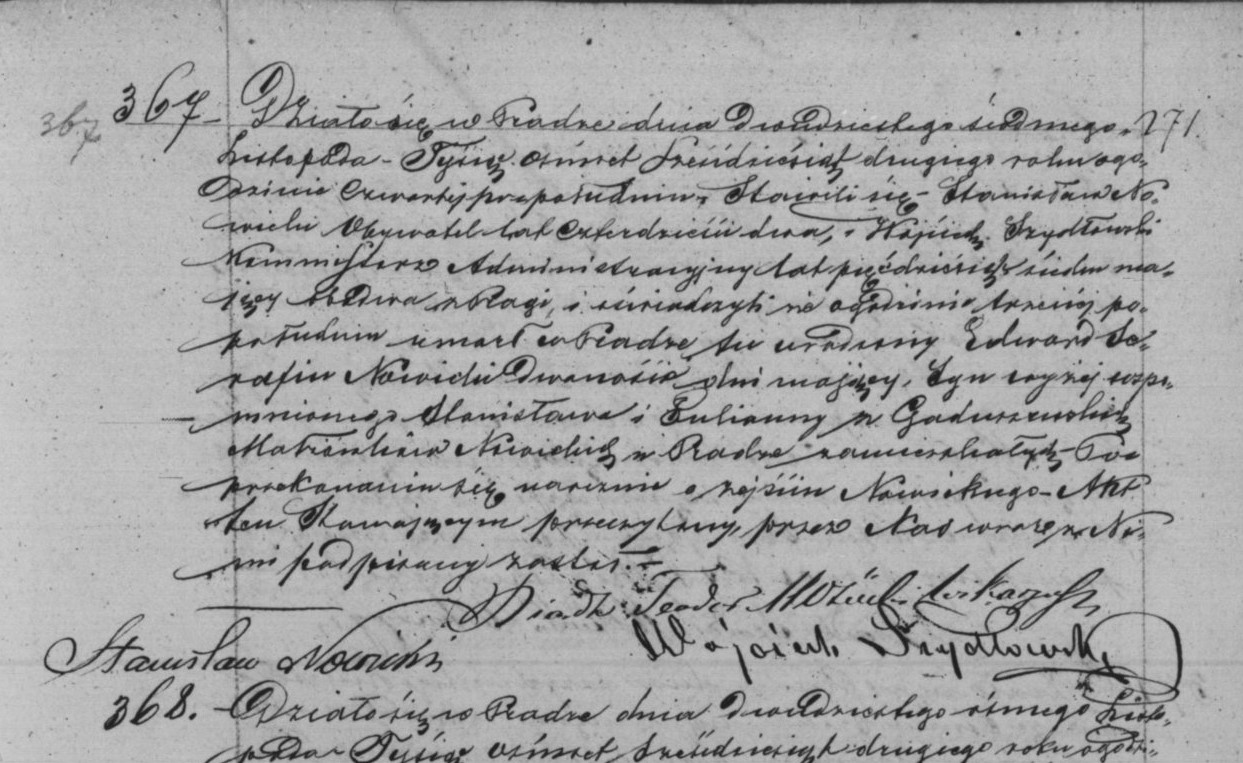 367. Działo się w Radze dnia dwudziestego siódmego 271.
367
Listopada Tysiąc ośmset sześdziesiąt drugiego roku ogo-
dzinie czwartej popołudniu, Stawili się Stanisław No-
wicki Obywatel lat czterdzieści dwa, i Wojciech Szydłowski
Kommissarz Administracyjny lat pięćdziesiąt siedm ma-
jący obydwa z Ragi, i oświadczyli że ogodzinie trzeciej po-
południu umarł w Radze, tu urodzony Edward Se-
rafin Nowicki dwanaście dni mający, Syn wyżej wspo-
mnionego Stanisława i Julianny z
Małżonków Nowickich w Radze zamieszkałych Po
przekonaniu się naocznie o zejściu Nowickiego Akt
ten Stawającym przeczytany, przez Nas wraz z Ni-
mi podpisany został.
Teodor
Wojciech Szydłowski
Stanisław Nowicki
368. Działo się w Radze dnia dwudziestego ósmego Listo-
pada Tysiąc ośmset sześdziesiąt drugiego roku ogodzi-